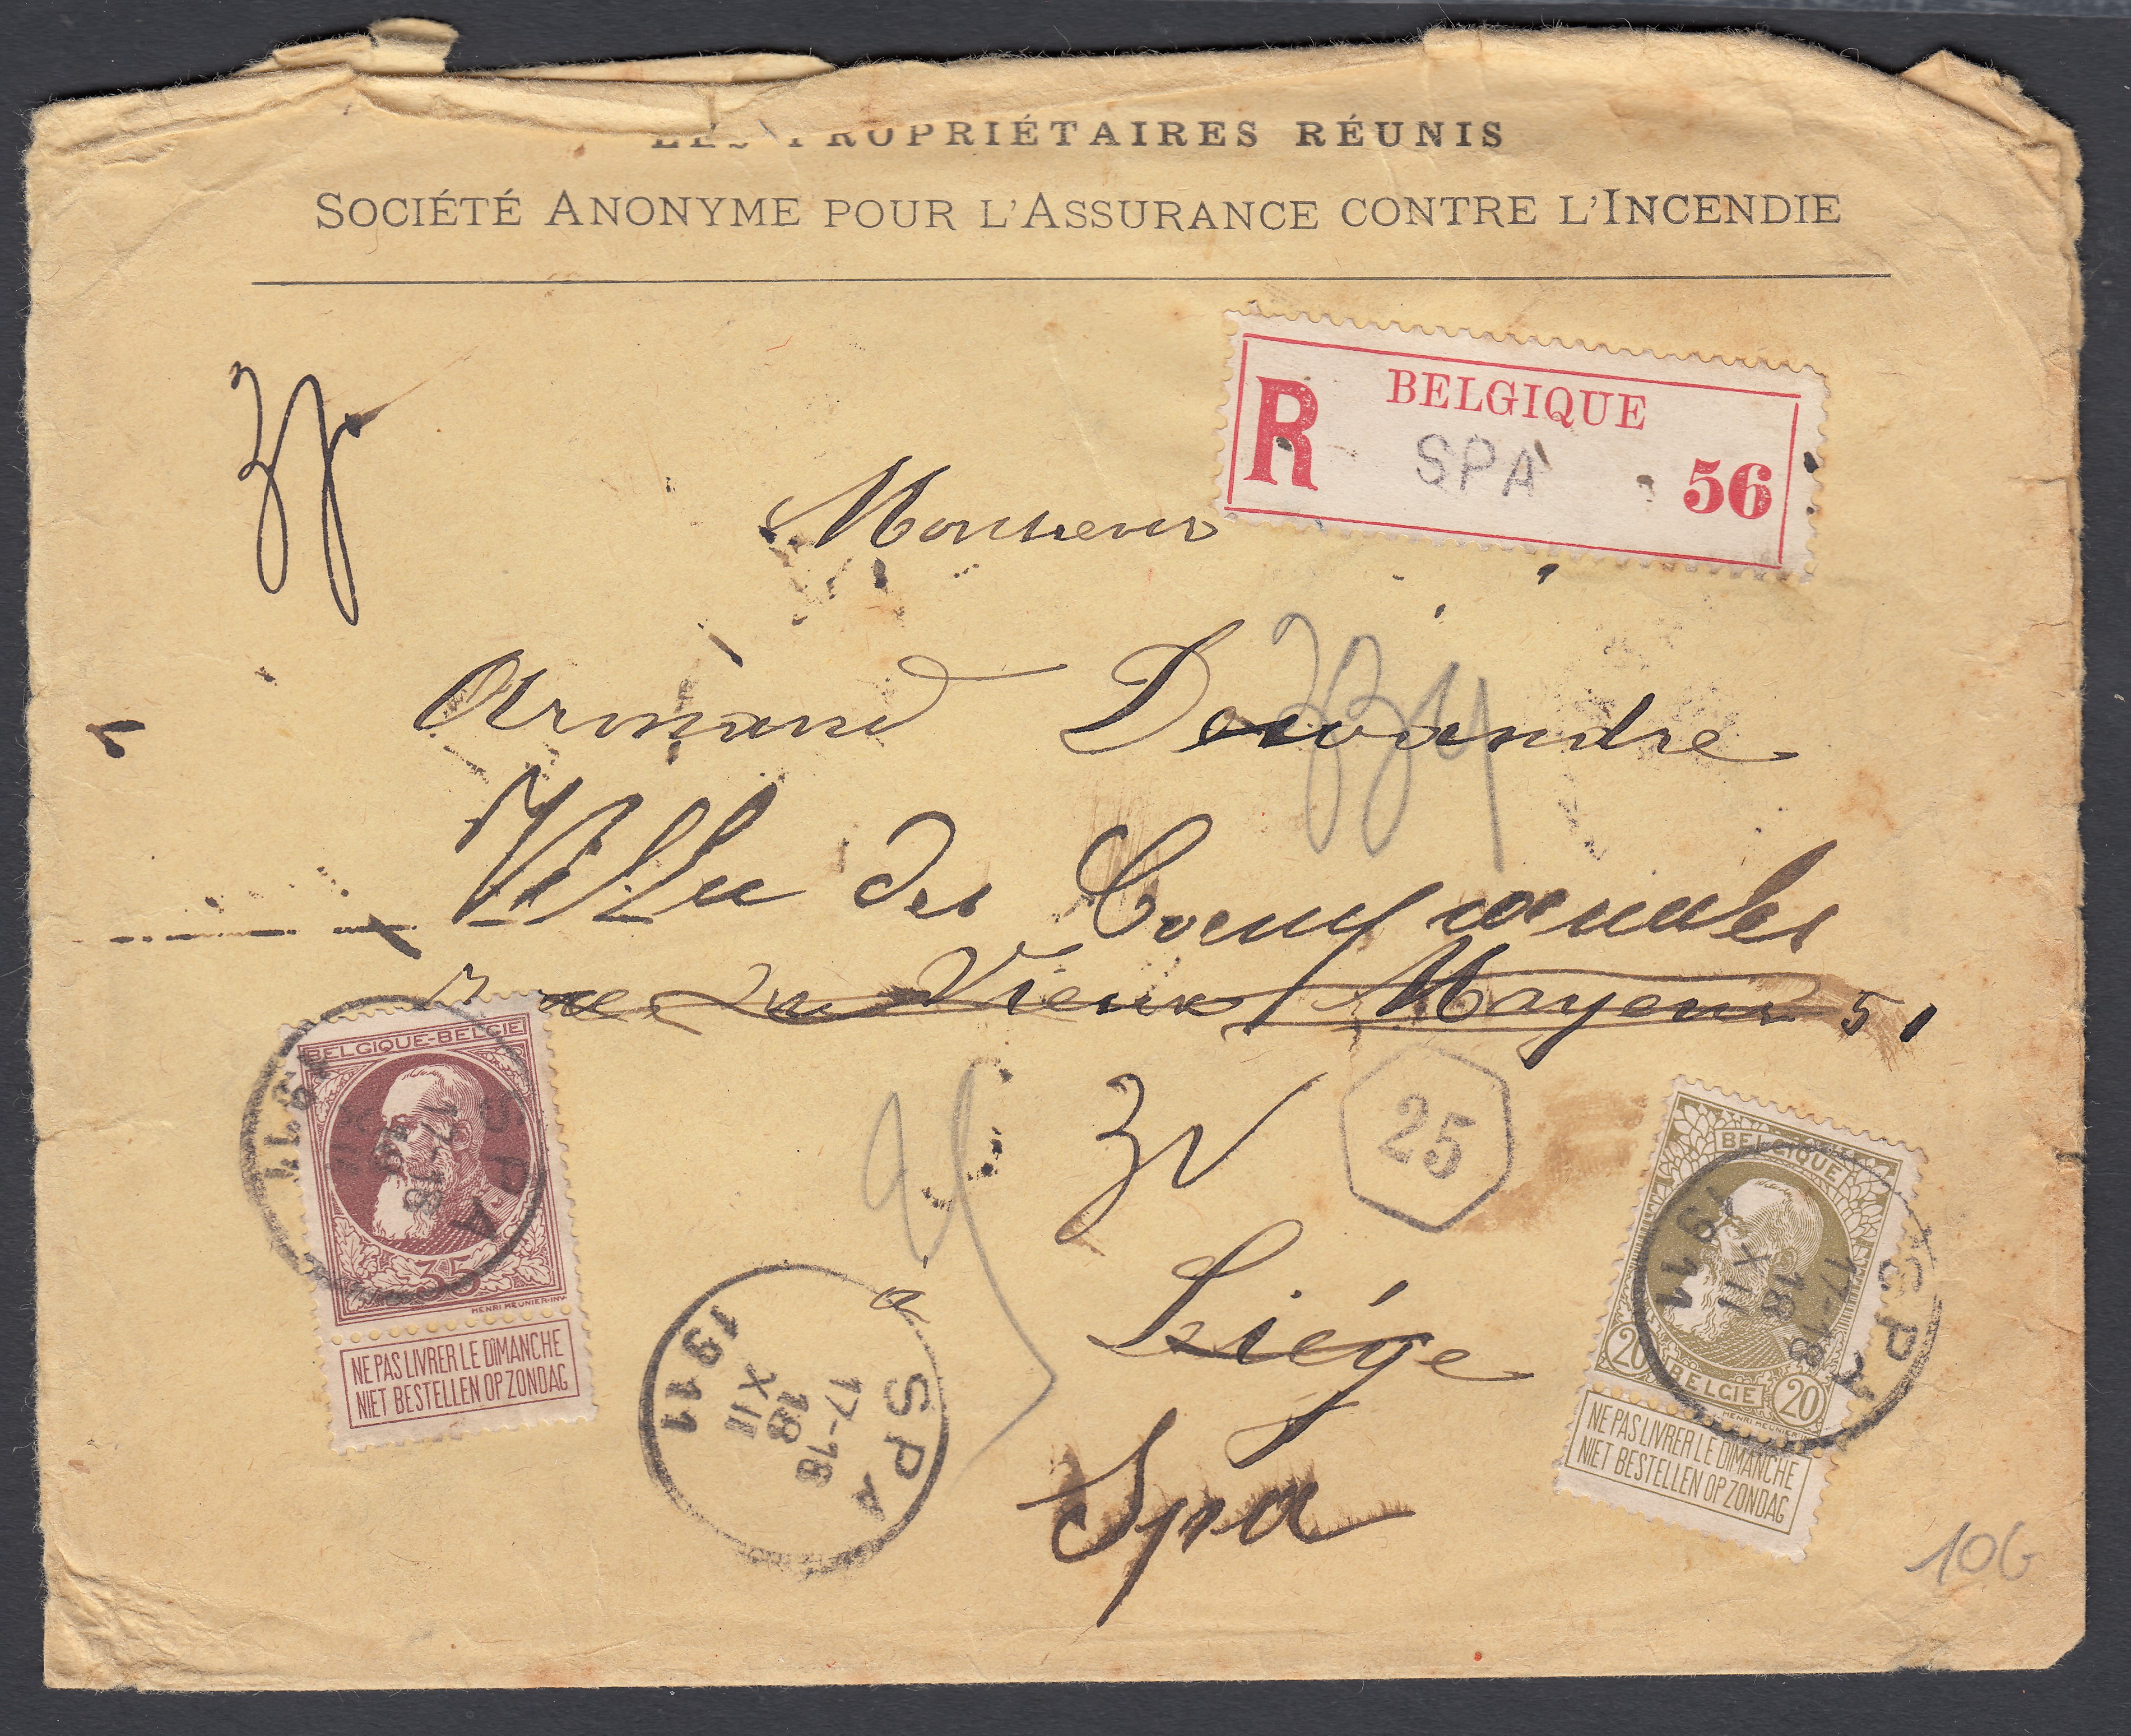 LES PROPRIÉTAIRES RÉUNIS
SOCIÉTÉ ANONYME POUR L'ASSURANCE CONTRE L'INCENDIE
R BELGIQUE
SPA 56
Monsieur
Armand Dewandre
334
Villa des
rue du Vieux Mayeur 51
25
à
Liége
Spa
BELGIQUE-BELGIE
35
HENRI MEUNIER-INV
NE PAS LIVRER LE DIMANCHE
NIET BESTELLEN OP ZONDAG
SPA
17-18
18
XII
1911
SPA
17-18
18
XII
1911
BELGIQUE
20 BELGIE 20
HENRI MEUNIER
NE PAS LIVRER LE DIMANCHE
NIET BESTELLEN OP ZONDAG
SPA
17-18
18
XII
1911
106